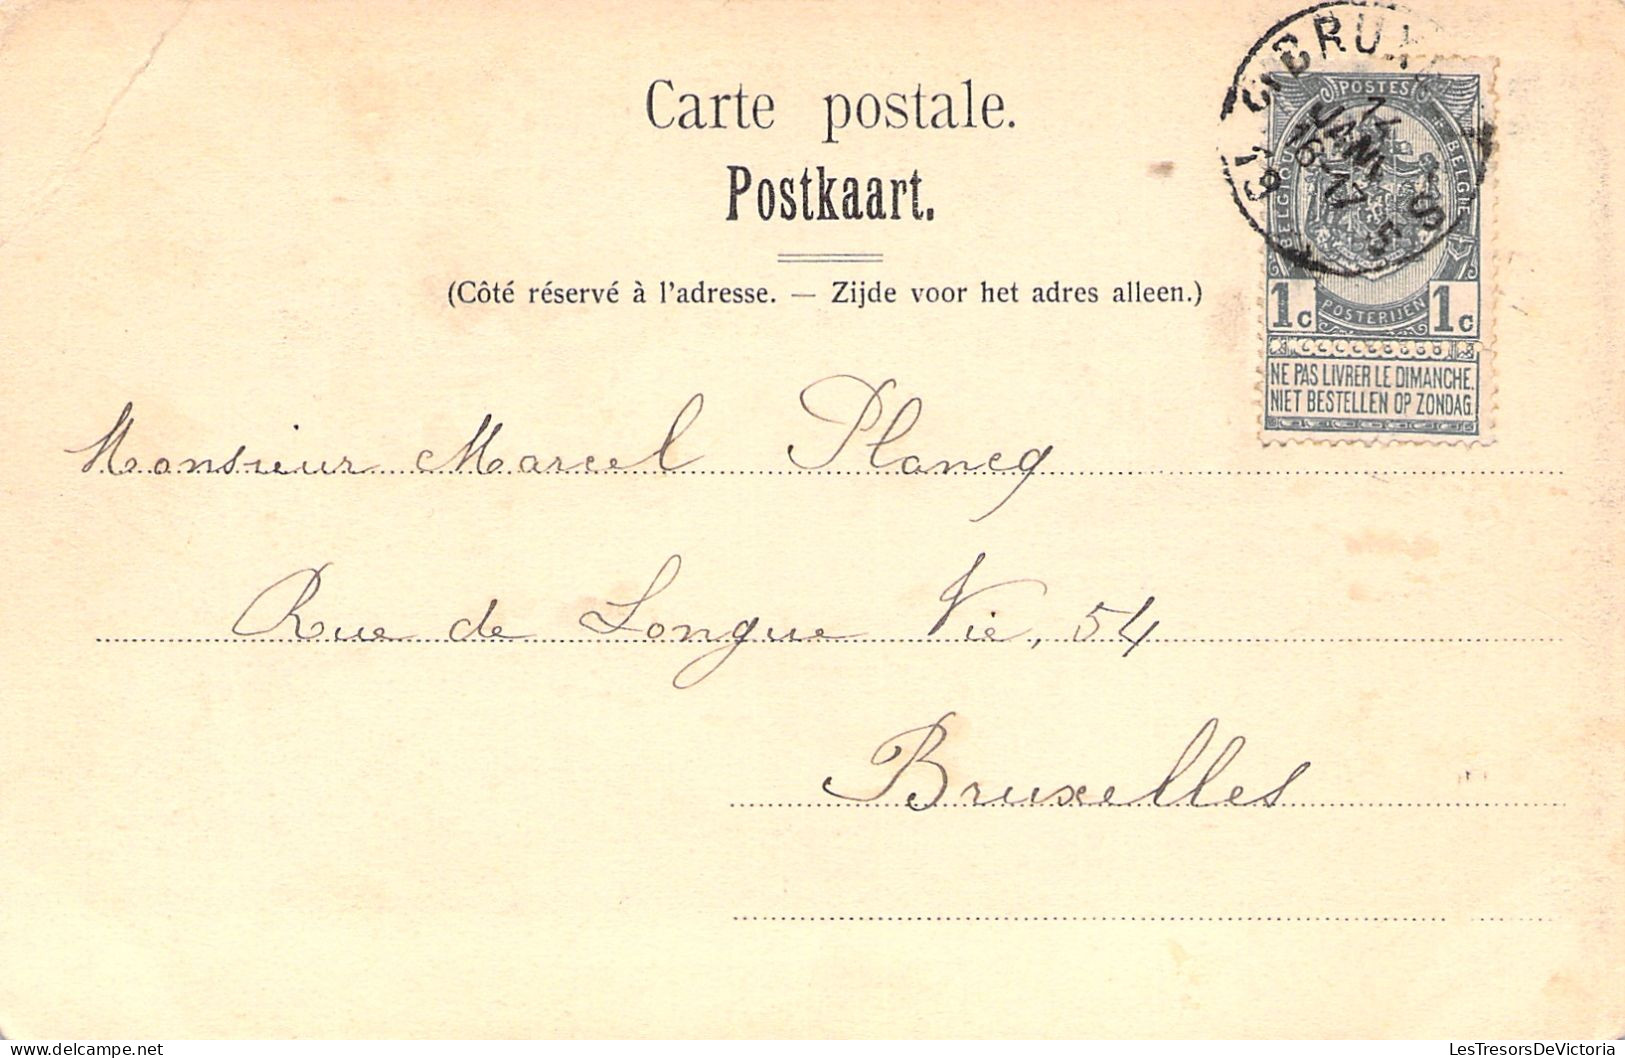 Carte postale.
Postkaart.
(Côté réservé à l'adresse. — Zijde voor het adres alleen.)
POSTES
BELGIQUE
BELGIE
POSTERIJEN
1c 1c
NE PAS LIVRER LE DIMANCHE.
NIET BESTELLEN OP ZONDAG.
JANV
Monsieur Marcel Plancq
Rue de Longue Vie, 54
Bruxelles
LesTresorsDeVictoria